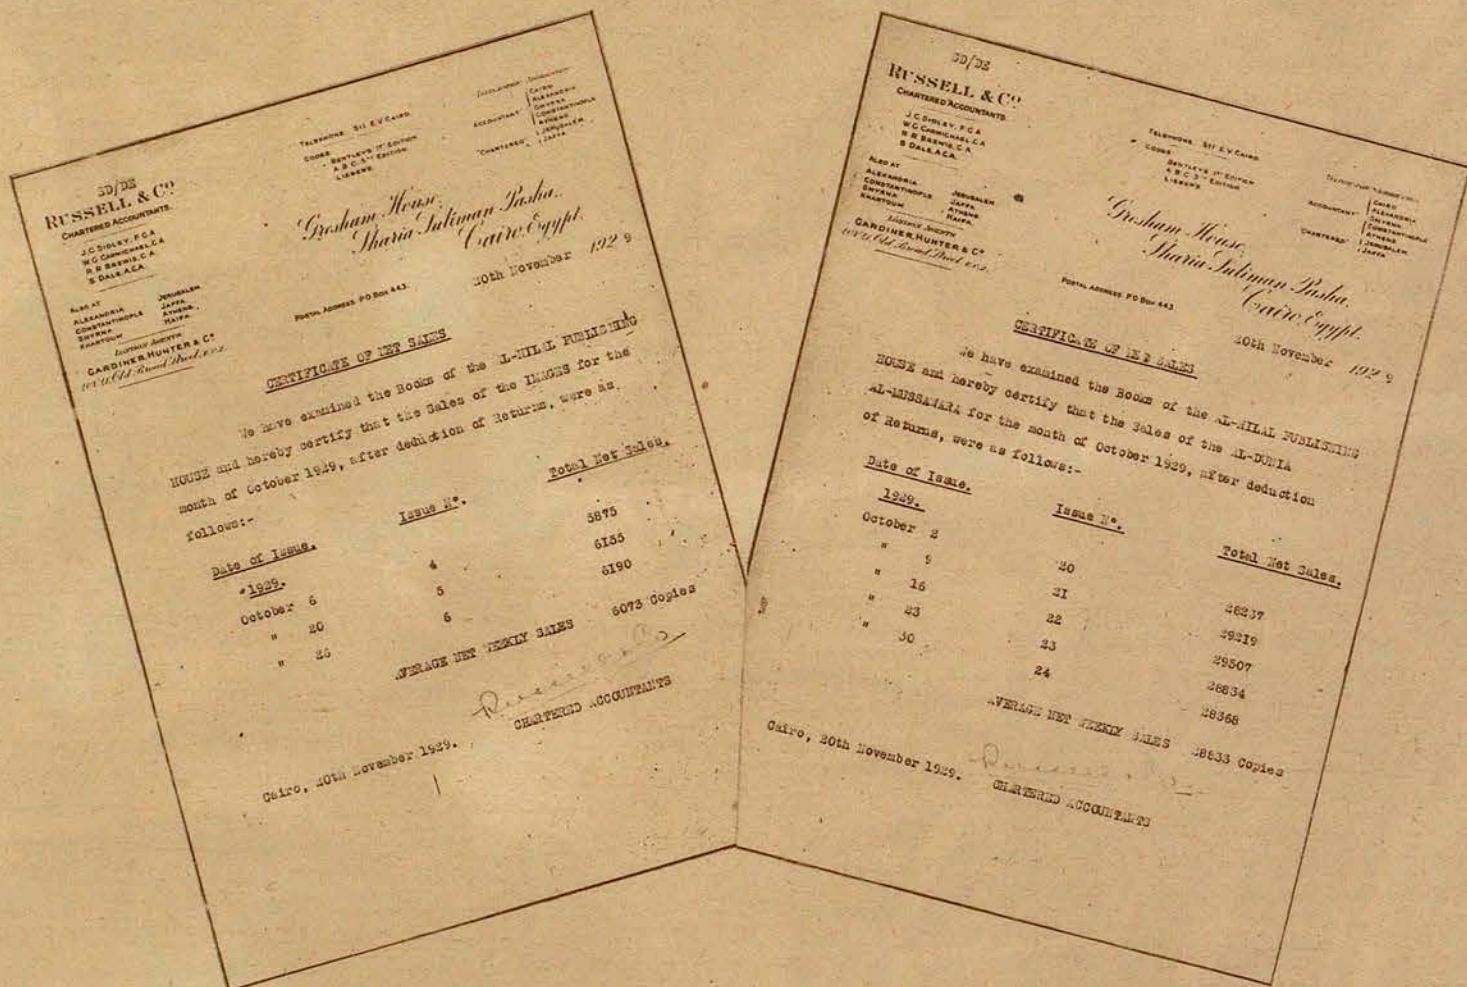 SD/DE
RUSSELL & Cº
CHARTERED ACCOUNTANTS.
J. C. SIDLEY, F.C.A
W. G. CARMICHAEL, C.A
R. R. BREWIS, C.A
S. DALE, A.C.A.
ALSO AT
ALEXANDRIA JERUSALEM
CONSTANTINOPLE JAFFA
SMYRNA ATHENS
KHARTOUM HAIFA
LONDON AGENTS
GARDINER, HUNTER & Cº
Old Broad Street, E.C.2.
TELEPHONE 511 E.V. CAIRO.
CODES
BENTLEY'S 1ST EDITION
A B C 5TH EDITION
LIEBER'S
ACCOUNTANT
CAIRO
ALEXANDRIA
SMYRNA
CONSTANTINOPLE
ATHENS
"CHARTERED" JERUSALEM
JAFFA
Gresham House,
Sharia Suliman Pasha,
Cairo, Egypt.
POSTAL ADDRESS PO BOX 443
20th November 1929
CERTIFICATE OF NET SALES
We have examined the Books of the AL-HILAL PUBLISHING
HOUSE and hereby certify that the Sales of the IMAGES for the
month of October 1929, after deduction of Returns, were as
follows:-
Date of Issue. Issue Nº. Total Net Sales.
1929.
October 6 4 5875
" 20 5 6155
" 26 6 6190
AVERAGE NET WEEKLY SALES 6073 Copies
Russell & Co
CHARTERED ACCOUNTANTS
Cairo, 20th November 1929.
SD/DE
RUSSELL & Cº
CHARTERED ACCOUNTANTS
J. C. SIDLEY, F.C.A
W. G. CARMICHAEL, C.A
R. R. BREWIS, C.A
S. DALE, A.C.A.
ALSO AT
ALEXANDRIA JERUSALEM
CONSTANTINOPLE JAFFA
SMYRNA ATHENS
KHARTOUM HAIFA
LONDON AGENTS
GARDINER, HUNTER & Cº
Old Broad Street, E.C.2.
TELEPHONE 511 E.V. CAIRO
CODES
BENTLEY'S 1ST EDITION
A B C 5TH EDITION
LIEBER'S
ACCOUNTANT
CAIRO
ALEXANDRIA
SMYRNA
CONSTANTINOPLE
ATHENS
"CHARTERED" JERUSALEM
JAFFA
Gresham House,
Sharia Suliman Pasha,
Cairo, Egypt.
POSTAL ADDRESS PO BOX 443
20th November 1929
CERTIFICATE OF NET SALES
We have examined the Books of the AL-HILAL PUBLISHING
HOUSE and hereby certify that the Sales of the AL-DUNIA
AL-MUSSAWARA for the month of October 1929, after deduction
of Returns, were as follows:-
Date of Issue. Issue Nº. Total Net Sales.
1929.
October 2 20 28237
" 9 21 29219
" 16 22 29507
" 23 23 28834
" 30 24 28368
AVERAGE NET WEEKLY SALES 28833 Copies
Russell & Co
CHARTERED ACCOUNTANTS
Cairo, 20th November 1929.